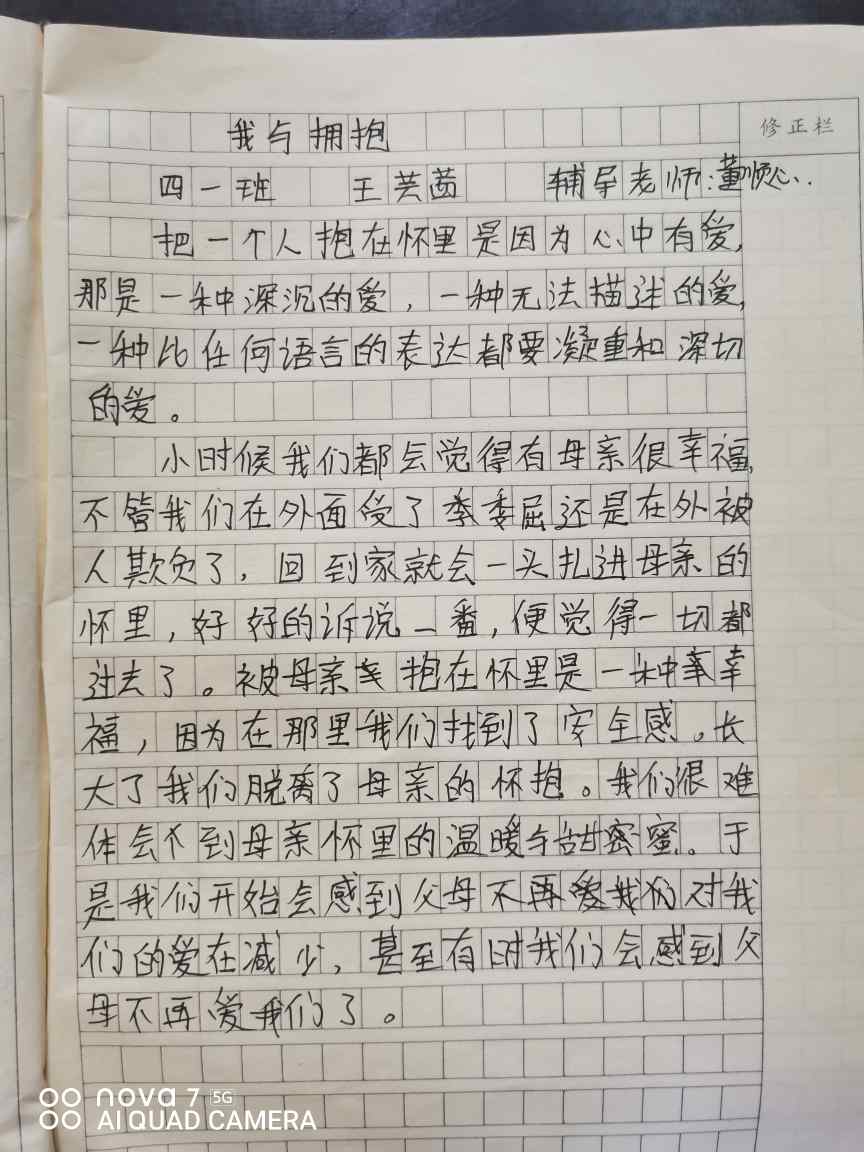 我与拥抱
修正栏
四一班 王芸茜 辅导老师:董顺心.
把一个人抱在怀里是因为心中有爱,
那是一种深沉的爱,一种无法描述的爱,
一种比任何语言的表达都要凝重和深切
的爱。
小时候我们都会觉得有母亲很幸福,
不管我们在外面受了季委屈还是在外被
人欺负了,回到家就会一头扎进母亲的
怀里,好好的诉说一番,便觉得一切都
过去了。被母亲抱在怀里是一种幸
福,因为在那里我们找到了安全感。长
大了我们脱离了母亲的怀抱。我们很难
体会不到母亲怀里的温暖与甜密蜜。于
是我们开始会感到父母不再爱我们对我
们的爱在减少,甚至有时我们会感到父
母不再爱我们了。
nova 7 5G
AI QUAD CAMERA